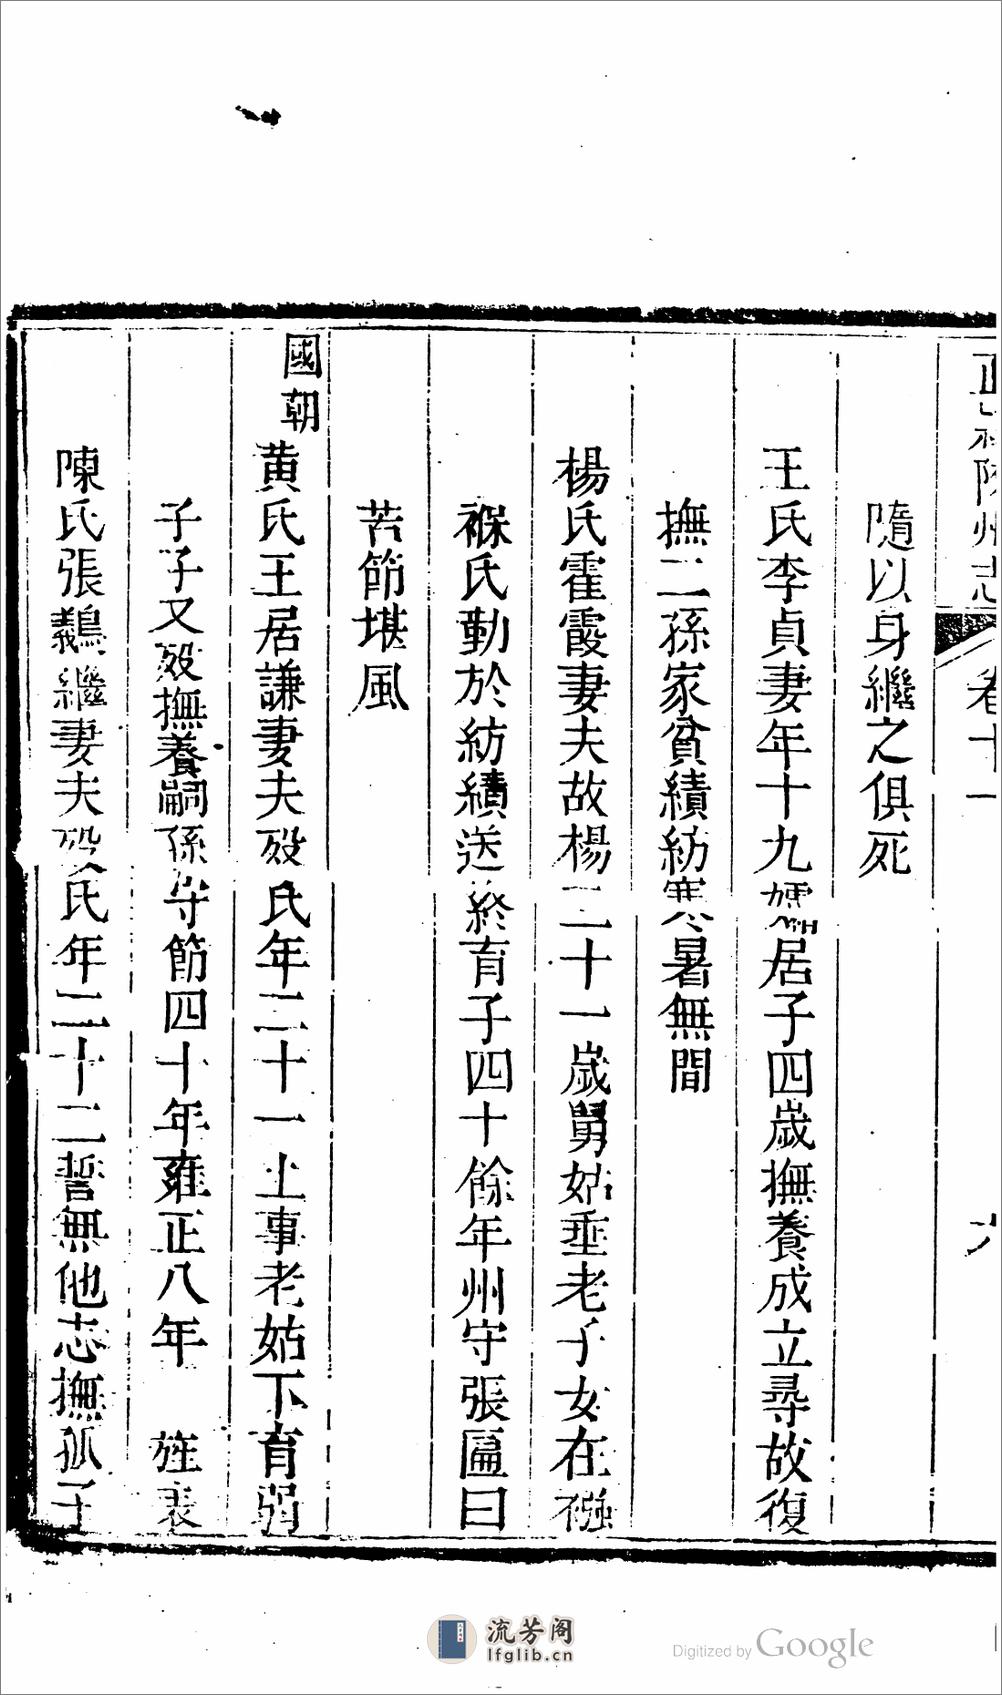 直隸陝州志 卷十一
隨以身繼之俱死
王氏李貞妻年十九孀居子四歲撫養成立尋故復
撫二孫家貧績紡寒暑無間
楊氏霍霞妻夫故楊二十一歲舅姑垂老子女在襁
褓氏勤於紡績送終育子四十餘年州守張匾曰
苦節堪風
國朝黄氏王居謙妻夫歿氏年二十一上事老姑下育弱
子子又歿撫養嗣孫守節四十年雍正八年 旌表
陳氏張鷬繼妻夫歿氏年二十二誓無他志撫孤子
流芳阁
lfglib.cn
Digitized by Google